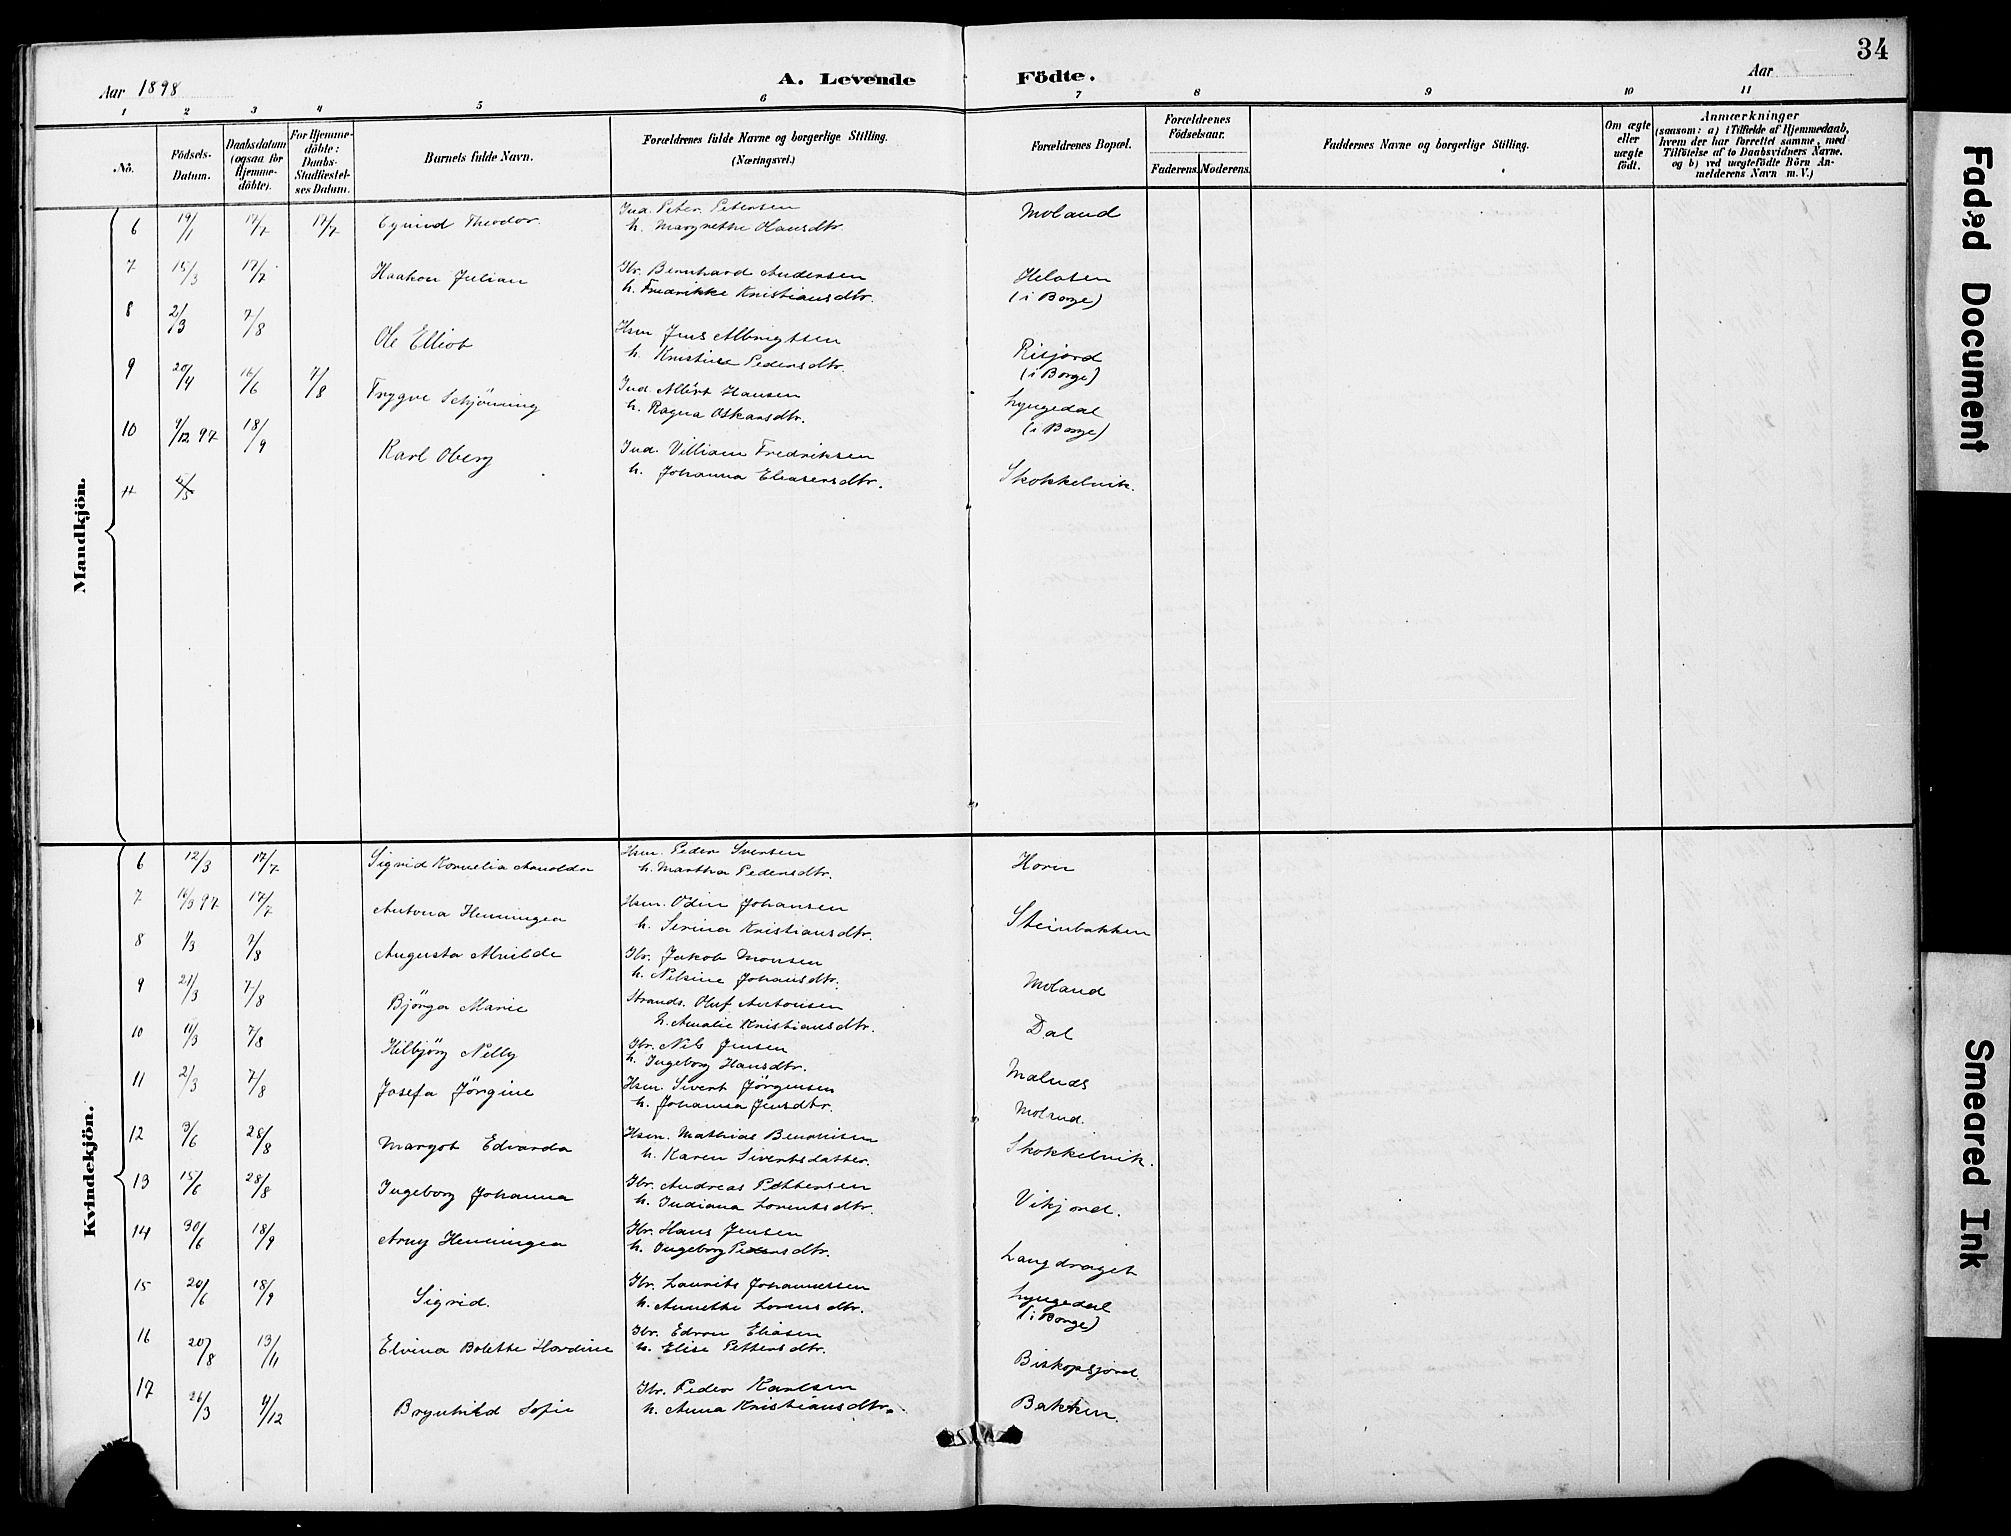 34
Aar 1898 A. Levende Födte. Aar
1 2 3 4 5 6 7 8 9 10 11
No. Födsels-Datum. Daabsdatum (ogsaa for Hjemme-döbte). For Hjemme-döbte: Daabs-Stadfæstel-ses Datum. Barnets fulde Navn. Forældrenes fulde Navne og borgerlige Stilling. (Næringsvei.) Forældrenes Bopæl. Forældrenes Födselsaar. Faderens. Moderens. Faddernes Navne og borgerlige Stilling. Om ægte eller uægte födt. Anmærkninger (saasom: a) i Tilfælde af Hjemmedaab, hvem der har forrettet samme, med Tilföielse af to Daabsvidners Navne, og b) ved uægtefödte Börn An-melderens Navn m. V.)
Mandkjön.
6 19/1 17/7 17/7 Eyvind Theodor. Ind. Peter Petersen Moland
h. Margrethe Hansdtr.
7 15/3 17/7 Haakon Julian Gbr. Bernhard Andersen Helosen
h. Fredrikke Kristiansdtr. (i Borge)
8 21/3 7/8 Ole Elliot Hsm Jens Albrigtsen Risjord
h. Kristine Pedersdtr. (i Borge)
9 20/4 16/6 7/8 Trygve Schjönning Ind. Albert Hansen Lyngedal
h. Ragna Oskarsdtr. (i Borge)
10 9/12 97 18/9 Karl Oberg Ind. Villiam Fredriksen
h. Johanna Eliasensdtr. Skokkelvik.
11
Kvindekjön.
6 12/3 17/7 Sigrid Kornelia Arnolda Hsm. Peder Sversen Horn
h. Martha Pedersdtr.
7 17/7 Antona Henningea Hsm. Odin Johansen Steinbakken
h. Serina Kristiansdtr.
8 1/3 7/8 Augusta Alvilde Gbr. Jakob Monsen Moland
h. Nelsine Johansdtr.
9 21/3 7/8 Björga Marie Strands. Oluf Antonsen Dal
h. Amalie Kristiansdtr.
10 11/3 7/8 Hilbjörg Nelly Gbr. Nils Jensen
h. Ingeborg Hansdtr. Malnes
11 2/3 7/8 Josefa Jörgine Hsm. Sivert Jörgensen
h. Johanna Jensdtr. Molnd.
12 3/6 28/8 Margot Edvarda Hsm. Mathias Benonisen Skokkelvik.
h. Karen Sivertsdatter.
13 15/6 28/8 Ingeborg Johanna Gbr. Andreas Pettersen Vikjord.
h. Indiana Lorentsdtr.
14 30/6 18/9 Arny Henningea Gbr. Hans Jensen Langdraget
h. Ingeborg Pedersdtr.
15 20/6 18/9 Sigrid. Gbr. Laurits Johannessen Lyngedal
h. Annette Lorensdtr. (i Borge)
16 20/8 13/11 Elvina Bolette Hardine Gbr. Edvon Eliasen Biskopsjord.
h. Elise Pettersdtr.
17 26/3 4/12 Brynhild Sofie Gbr. Peder Karlsen Bakken.
h. Anna Kristiansdtr.
Faded Document
Smeared Ink